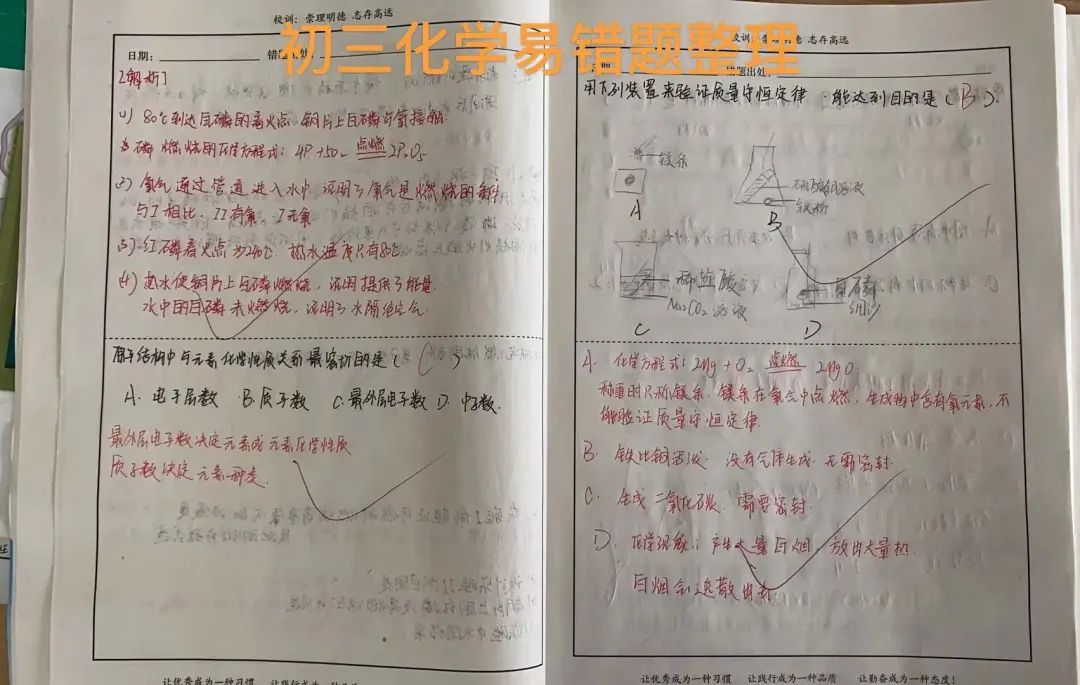 初三化学易错题整理
校训：崇理明德 志存高远
日期：
[解析]
(1) 80℃到达白磷的着火点，铜片上白磷与氧接触.
磷燃烧的化学方程式：4P+5O₂ 点燃 2P₂O₅
(2) 氧气通过管道进入水中，说明了氧气是燃烧的条件
与I相比，II有氧，I无氧
(3) 红磷着火点为240℃，热水温度只有80℃
(4) 热水使铜片上白磷燃烧，说明提供了能量.
水中的白磷未燃烧，说明了水隔绝空气.
原子结构中与元素化学性质关系最密切的是（ C ）
A. 电子层数 B.质子数 C.最外层电子数 D. 中子数.
最外层电子数决定元素化学性质
质子数决定元素种类.
让优秀成为一种习惯
校训：崇理明德 志存高远
错题出处：
用下列装置来验证质量守恒定律 能达到目的是（B）.
镁条
A
硫酸铜溶液
铁粉
B
稀盐酸
Na₂CO₃溶液
C
白磷
细沙
D
A. 化学方程式：2Mg + O₂ 点燃 2MgO.
称重时只称镁条. 镁条在氧气中点燃，生成物中含有氧元素，不
能验证质量守恒定律.
B. 铁比铜活泼. 没有气体生成. 无需密封.
C. 生成二氧化碳. 需要密封.
D. 化学现象：产生大量白烟，放出大量热.
白烟会逸散出去.
让优秀成为一种习惯 让践行成为一种品质 让勤奋成为一种态度！